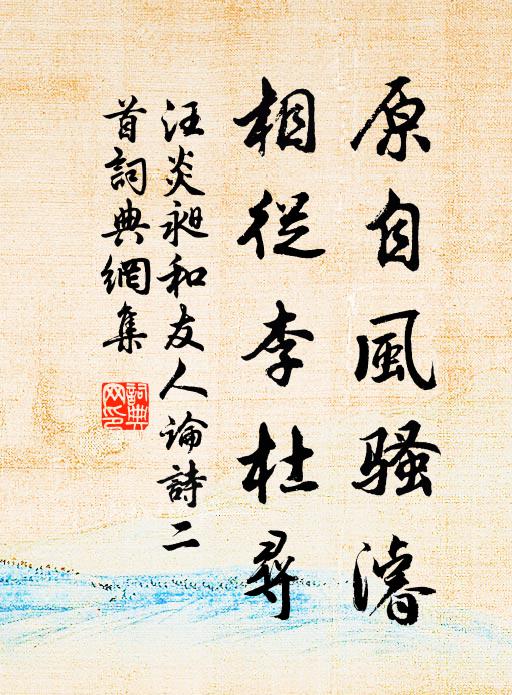 原自風騷濬
相從李杜尋
汪炎昶和友人論詩二
首詞典網集
詞典
网印